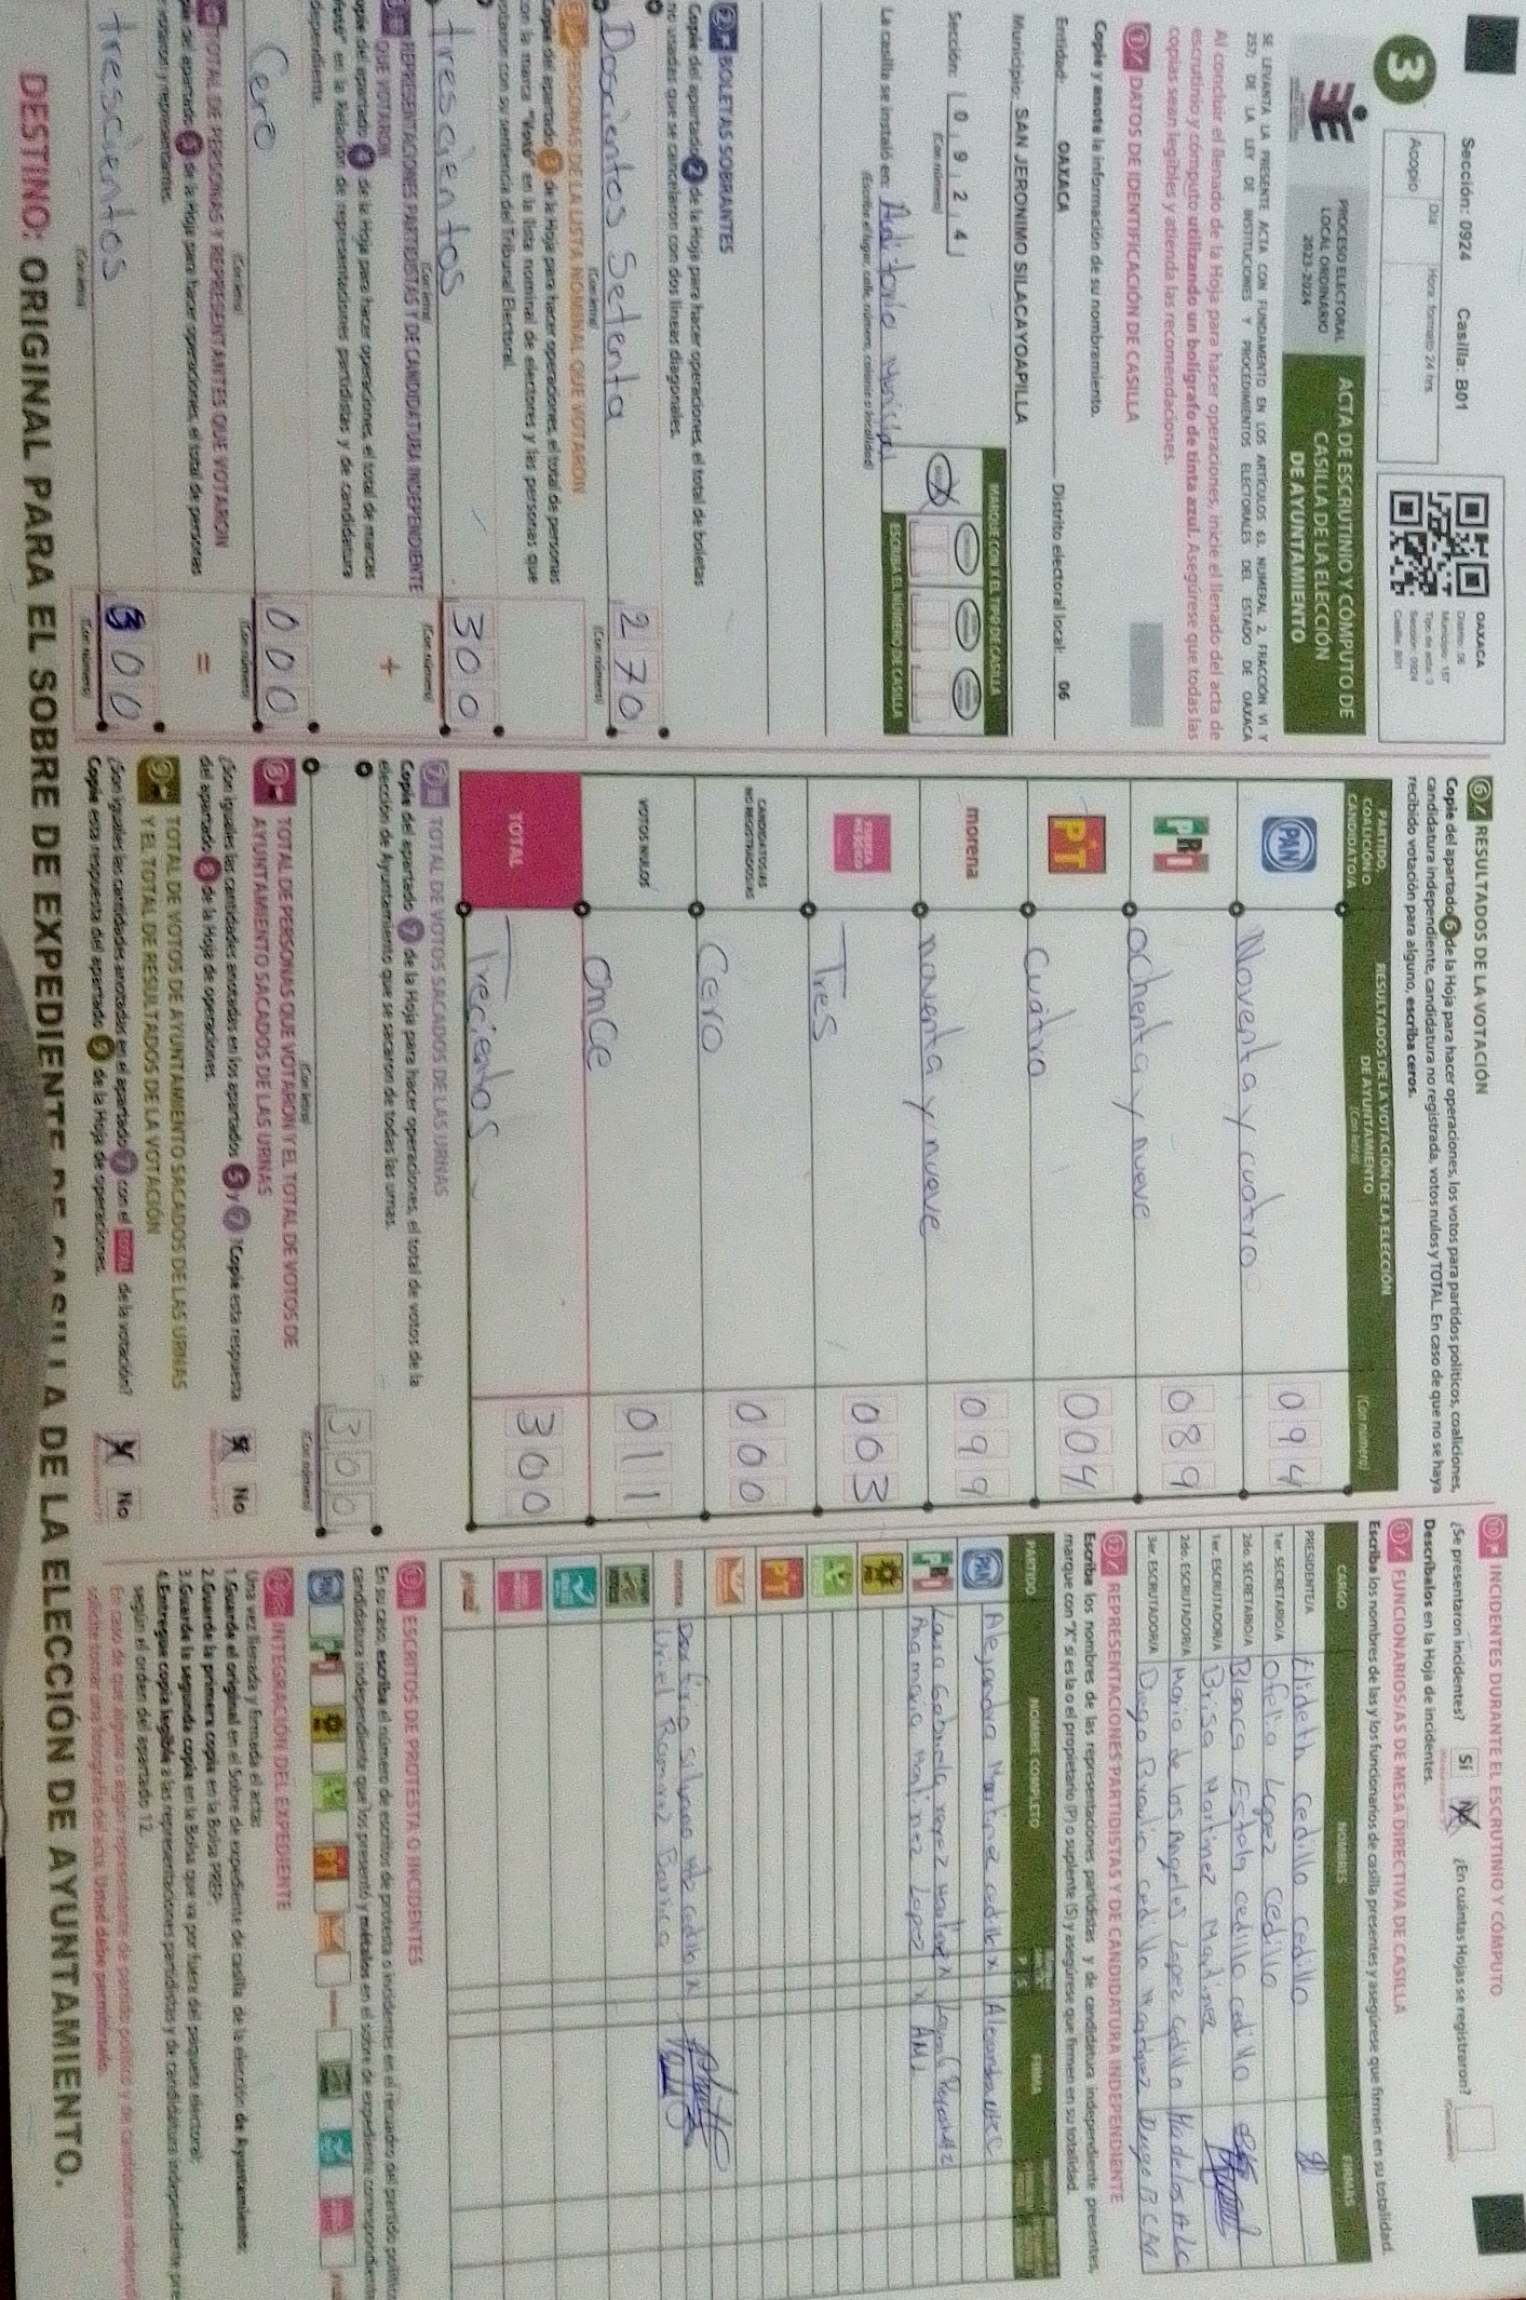 Sección: 0924 Casilla: B01
3
Día
Hora: formato 24 hrs.
Acopio
OAXACA
Distrito: 06
Municipio: 157
Tipo de acta: 3
Sección: 0924
Casilla: B01
PROCESO ELECTORAL
LOCAL ORDINARIO
2023-2024
ACTA DE ESCRUTINIO Y CÓMPUTO DE
CASILLA DE LA ELECCIÓN
DE AYUNTAMIENTO
SE LEVANTA LA PRESENTE ACTA CON FUNDAMENTO EN LOS ARTÍCULOS 63, NUMERAL 2, FRACCIÓN VI Y
257; DE LA LEY DE INSTITUCIONES Y PROCEDIMIENTOS ELECTORALES DEL ESTADO DE OAXACA
Al concluir el llenado de la Hoja para hacer operaciones, inicie el llenado del acta de
escrutinio y cómputo utilizando un bolígrafo de tinta azul. Asegúrese que todas las
copias sean legibles y atienda las recomendaciones.
1 DATOS DE IDENTIFICACIÓN DE CASILLA
Copie y anote la información de su nombramiento.
Entidad: OAXACA Distrito electoral local: 06
Municipio: SAN JERONIMO SILACAYOAPILLA
Sección: 0 9 2 4
(Con número)
MARQUE CON X EL TIPO DE CASILLA
ESCRIBA EL NÚMERO DE CASILLA
La casilla se instaló en: Auditorio Municipal
(Escriba el lugar, calle, número, colonia o localidad)
2 BOLETAS SOBRANTES
Copie del apartado 2 de la Hoja para hacer operaciones, el total de boletas
no usadas que se cancelaron con dos líneas diagonales.
Doscientos Setenta 270
(Con letra) (Con número)
3 PERSONAS DE LA LISTA NOMINAL QUE VOTARON
Copie del apartado 3 de la Hoja para hacer operaciones, el total de personas
con la marca "Votó" en la lista nominal de electores y las personas que
votaron con su sentencia del Tribunal Electoral.
trescientos 300
(Con letra) (Con número)
REPRESENTACIONES PARTIDISTAS Y DE CANDIDATURA INDEPENDIENTE
QUE VOTARON
+
Copie del apartado 4 de la Hoja para hacer operaciones, el total de marcas
"Votó" en la Relación de representaciones partidistas y de candidatura
independiente.
Cero 000
(Con letra) (Con número)
TOTAL DE PERSONAS Y REPRESENTANTES QUE VOTARON
=
Copie del apartado 5 de la Hoja para hacer operaciones, el total de personas
que votaron y representantes.
trescientos 300
(Con letra) (Con número)
6 RESULTADOS DE LA VOTACIÓN
Copie del apartado 6 de la Hoja para hacer operaciones, los votos para partidos políticos, coaliciones,
candidatura independiente, candidatura no registrada, votos nulos y TOTAL. En caso de que no se haya
recibido votación para alguno, escriba ceros.
PARTIDO,
COALICIÓN O
CANDIDATO/A
RESULTADOS DE LA VOTACIÓN DE LA ELECCIÓN
DE AYUNTAMIENTO
(Con letra)
(Con número)
PAN Noventa y cuatro 094
PRI ochenta y nueve 089
PT cuatro 004
morena noventa y nueve 099
FUERZA MÉXICO Tres 003
CANDIDATOS/AS
NO REGISTRADOS/AS Cero 000
VOTOS NULOS Once 011
TOTAL Trecientos 300
7 TOTAL DE VOTOS SACADOS DE LAS URNAS
Copie del apartado 7 de la Hoja para hacer operaciones, el total de votos de la
elección de Ayuntamiento que se sacaron de todas las urnas.
300
(Con letra) (Con número)
8 TOTAL DE PERSONAS QUE VOTARON Y EL TOTAL DE VOTOS DE
AYUNTAMIENTO SACADOS DE LAS URNAS
¿Son iguales las cantidades anotadas en los apartados 5 y 7? Copie esta respuesta
del apartado 8 de la Hoja de operaciones.
Sí No
9 TOTAL DE VOTOS DE AYUNTAMIENTO SACADOS DE LAS URNAS
Y EL TOTAL DE RESULTADOS DE LA VOTACIÓN
¿Son iguales las cantidades anotadas en el apartado 7 con el TOTAL de la votación?
Copie esta respuesta del apartado 9 de la Hoja de operaciones.
Sí No
10 INCIDENTES DURANTE EL ESCRUTINIO Y CÓMPUTO
¿Se presentaron incidentes? Sí No ¿En cuántas Hojas se registraron?
Descríbalos en la Hoja de incidentes.
11 FUNCIONARIOS/AS DE MESA DIRECTIVA DE CASILLA
Escriba los nombres de las y los funcionarios de casilla presentes y asegúrese que firmen en su totalidad.
CARGO NOMBRES FIRMAS
PRESIDENTE/A Elideth Cedillo Cedillo
1er. SECRETARIO/A Ofelia Lopez Cedillo
2do. SECRETARIO/A Blanca Estela cedillo cedillo
1er. ESCRUTADOR/A Brisa Martinez Martinez
2do. ESCRUTADOR/A Maria de los Angeles Lopez Cedillo Ma de los A L C
3er. ESCRUTADOR/A Diego Braulio cedillo Martinez Diego B C M
12 REPRESENTACIONES PARTIDISTAS Y DE CANDIDATURA INDEPENDIENTE
Escriba los nombres de las representaciones partidistas y de candidatura independiente presentes,
marque con "X" si es la o el propietario (P) o suplente (S) y asegúrese que firmen en su totalidad.
PARTIDO NOMBRE COMPLETO P S FIRMA
PAN Alejandra Martinez cedillo X
PRI Laura Gabriela reyez Martinez X
Ana maria Martinez Lopez X AML
PT
morena Porfirio Silvano X
Uriel Ramirez
13 ESCRITOS DE PROTESTA O INCIDENTES
En su caso, escriba el número de escritos de protesta o incidentes en el recuadro del partido político
candidatura independiente que los presentó y métalos en el sobre de expediente correspondiente
INTEGRACIÓN DEL EXPEDIENTE
Una vez llenada y firmada el acta:
1.Guarde el original en el Sobre de expediente de casilla de la elección de Ayuntamiento;
2.Guarde la primera copia en la Bolsa PREP;
3.Guarde la segunda copia en la Bolsa que va por fuera del paquete electoral;
4.Entregue copia legible a las representaciones partidistas y de candidatura independiente
según el orden del apartado 12.
En caso de que alguna o algún representante de partido político y de candidatura
solicite tomar una fotografía del acta, Usted debe permitírselo.
DESTINO: ORIGINAL PARA EL SOBRE DE EXPEDIENTE DE CASILLA DE LA ELECCIÓN DE AYUNTAMIENTO.